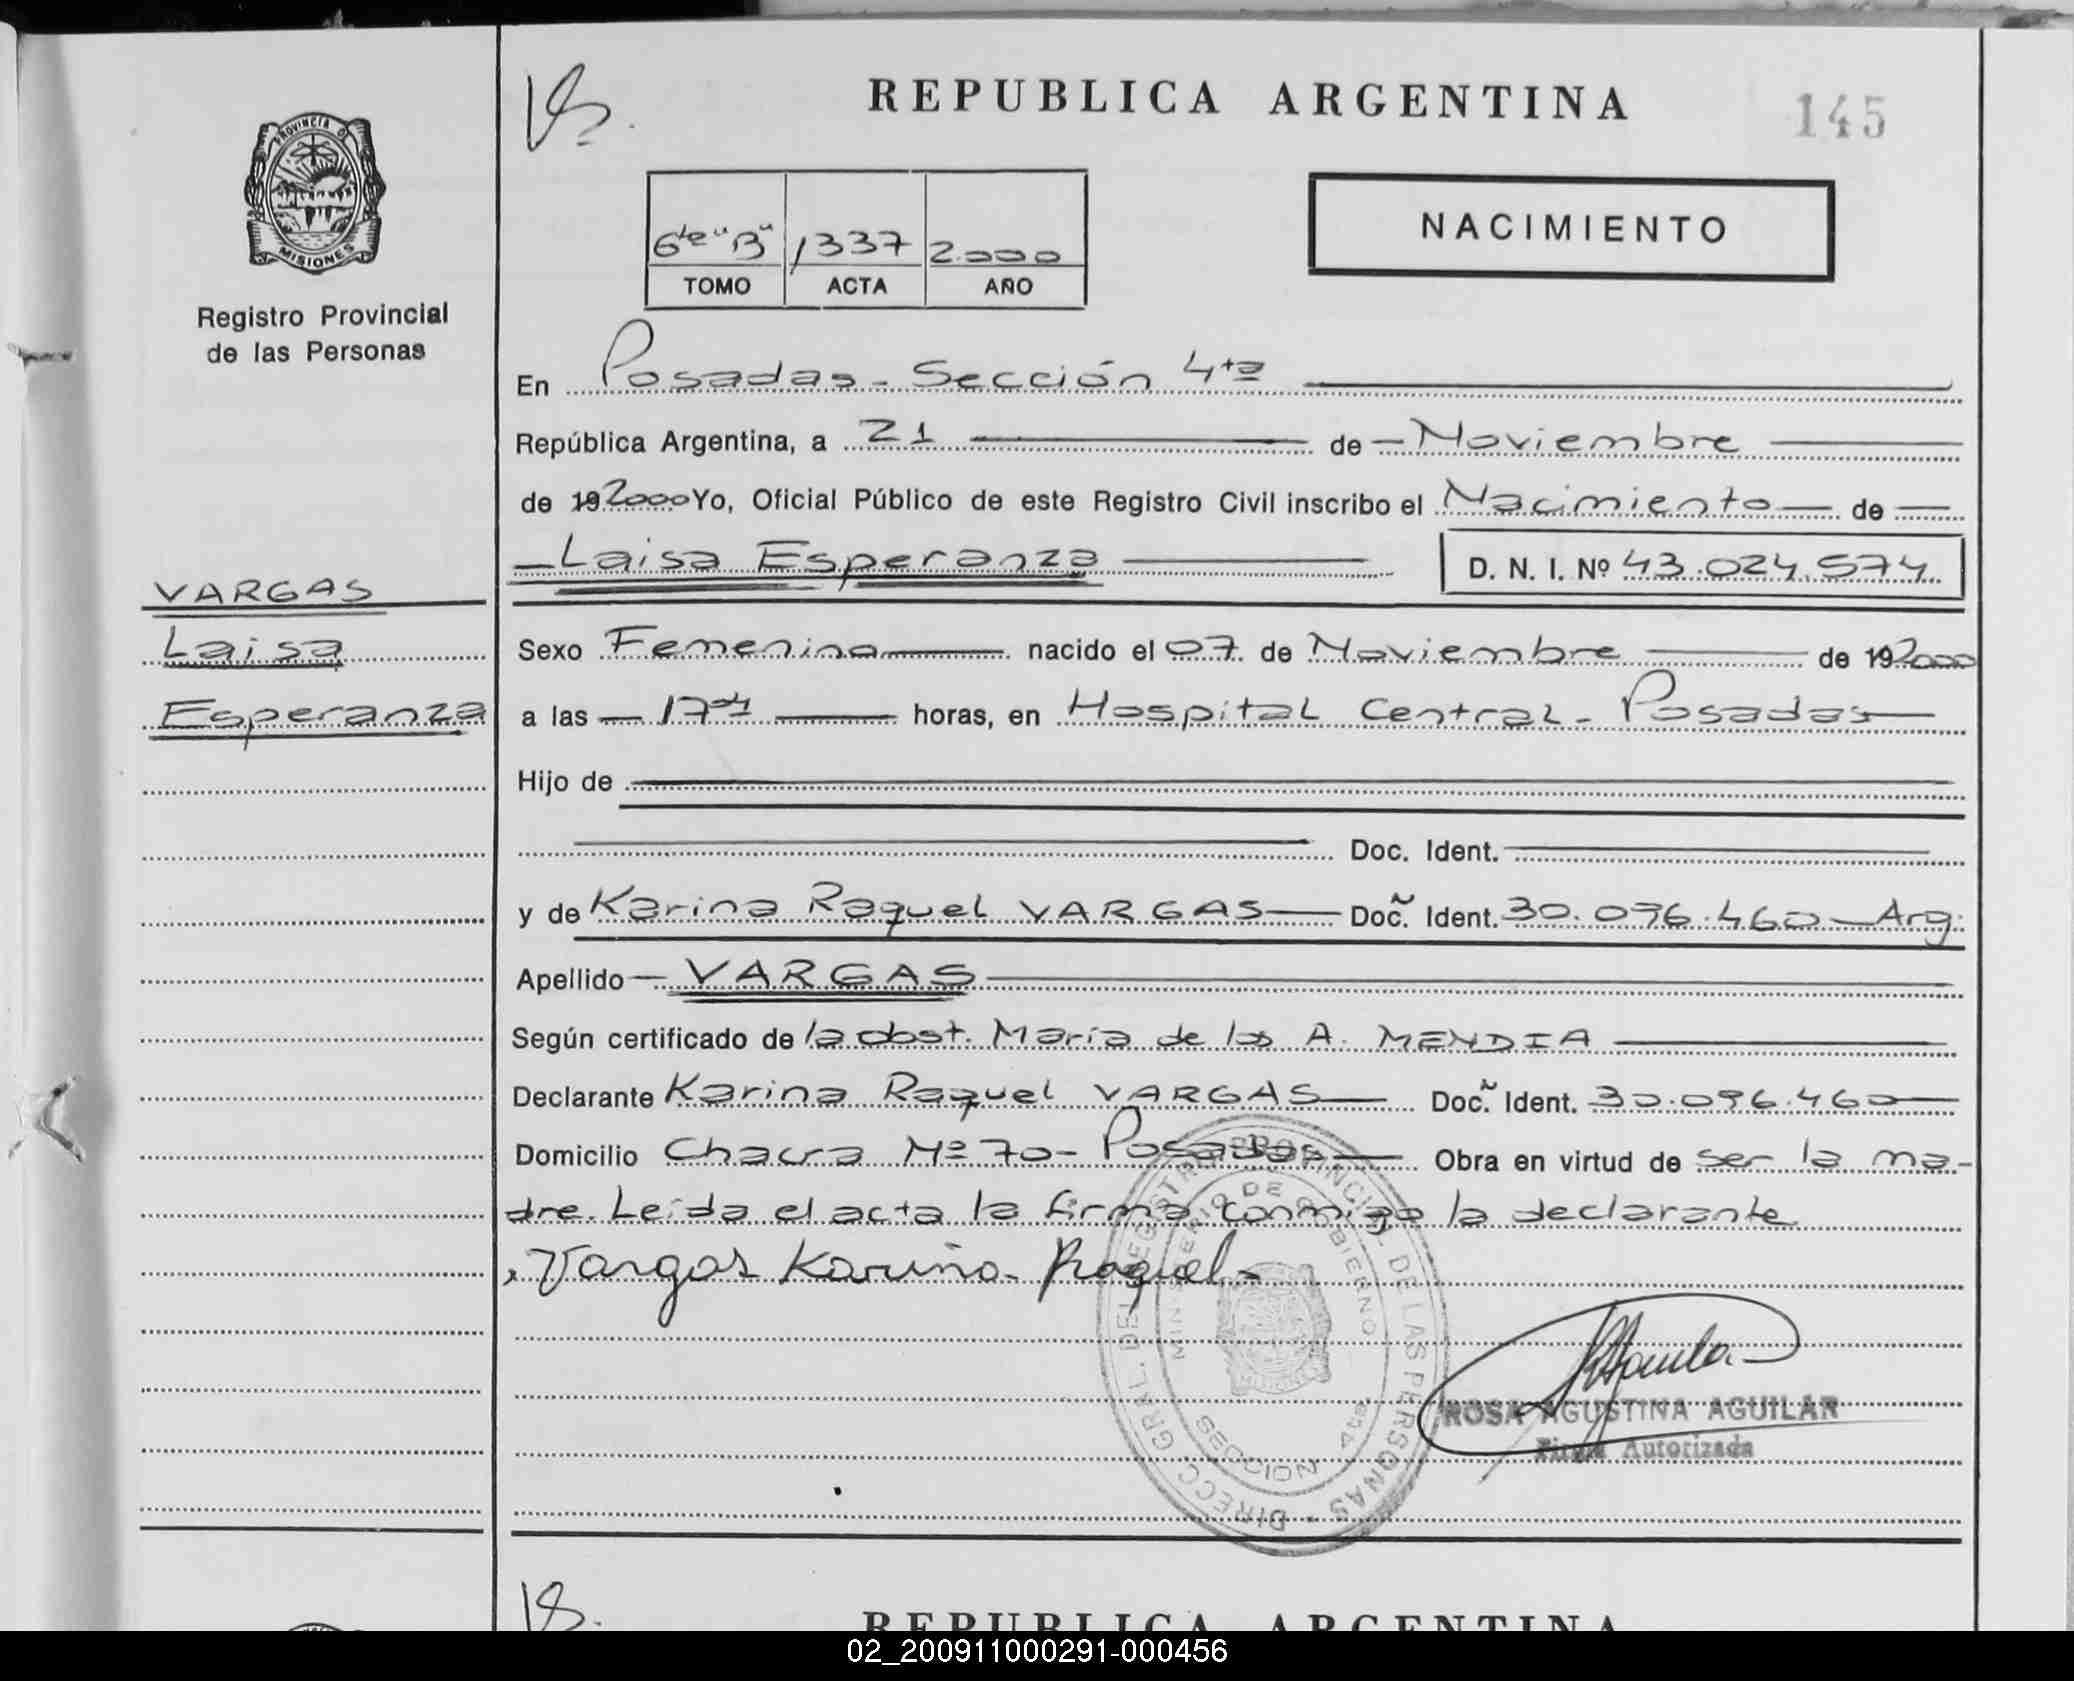 REPUBLICA ARGENTINA
145
PROVINCIA D
MISIONES
Registro Provincial
de las Personas
6to "B" 1337 2.000
TOMO ACTA AÑO
NACIMIENTO
En Posadas - Sección 4ta
República Argentina, a 21 de - Noviembre
de 19 2000 Yo, Oficial Público de este Registro Civil inscribo el Nacimiento de
Laisa Esperanza D. N. I. Nº 43.024.574
VARGAS
Laisa
Esperanza
Sexo Femenino nacido el 07 de Noviembre de 19 2000
a las 17 horas, en Hospital Central - Posadas
Hijo de
Doc. Ident.
y de Karina Raquel VARGAS Doc. Ident. 30.096.460 - Arg.
Apellido - VARGAS
Según certificado de la obst. María de los A. MENDIA
Declarante Karina Raquel VARGAS Doc. Ident. 30.096.460
Domicilio Chacra Nº 70 - Posadas Obra en virtud de ser la ma-
dre. Leída el acta la firma conmigo la declarante
Vargas Karina Raquel
DIRECC. GRAL. DEL REGISTRO PROVINCIAL DE LAS PERSONAS
MINISTERIO DE GOBIERNO
SECCION 4ta
ROSA AGUSTINA AGUILAR
Firma Autorizada
REPUBLICA ARGENTINA
02_200911000291-000456